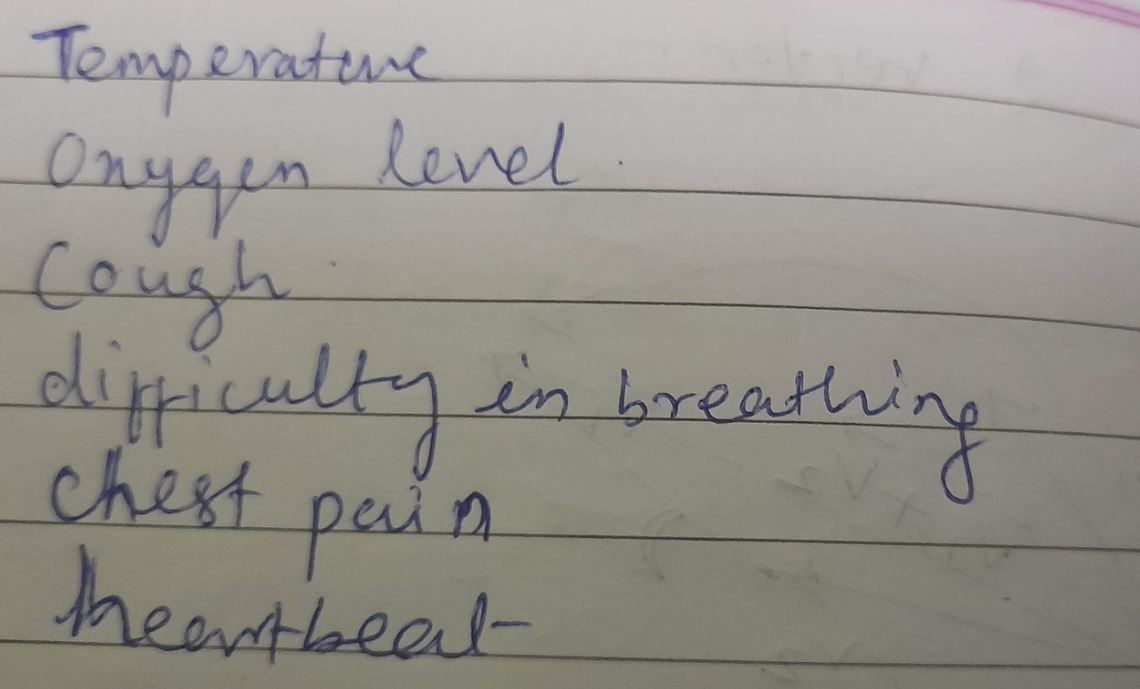 Temperature
Oxygen level.
Cough.
difficulty in breathing
chest pain
heartbeat